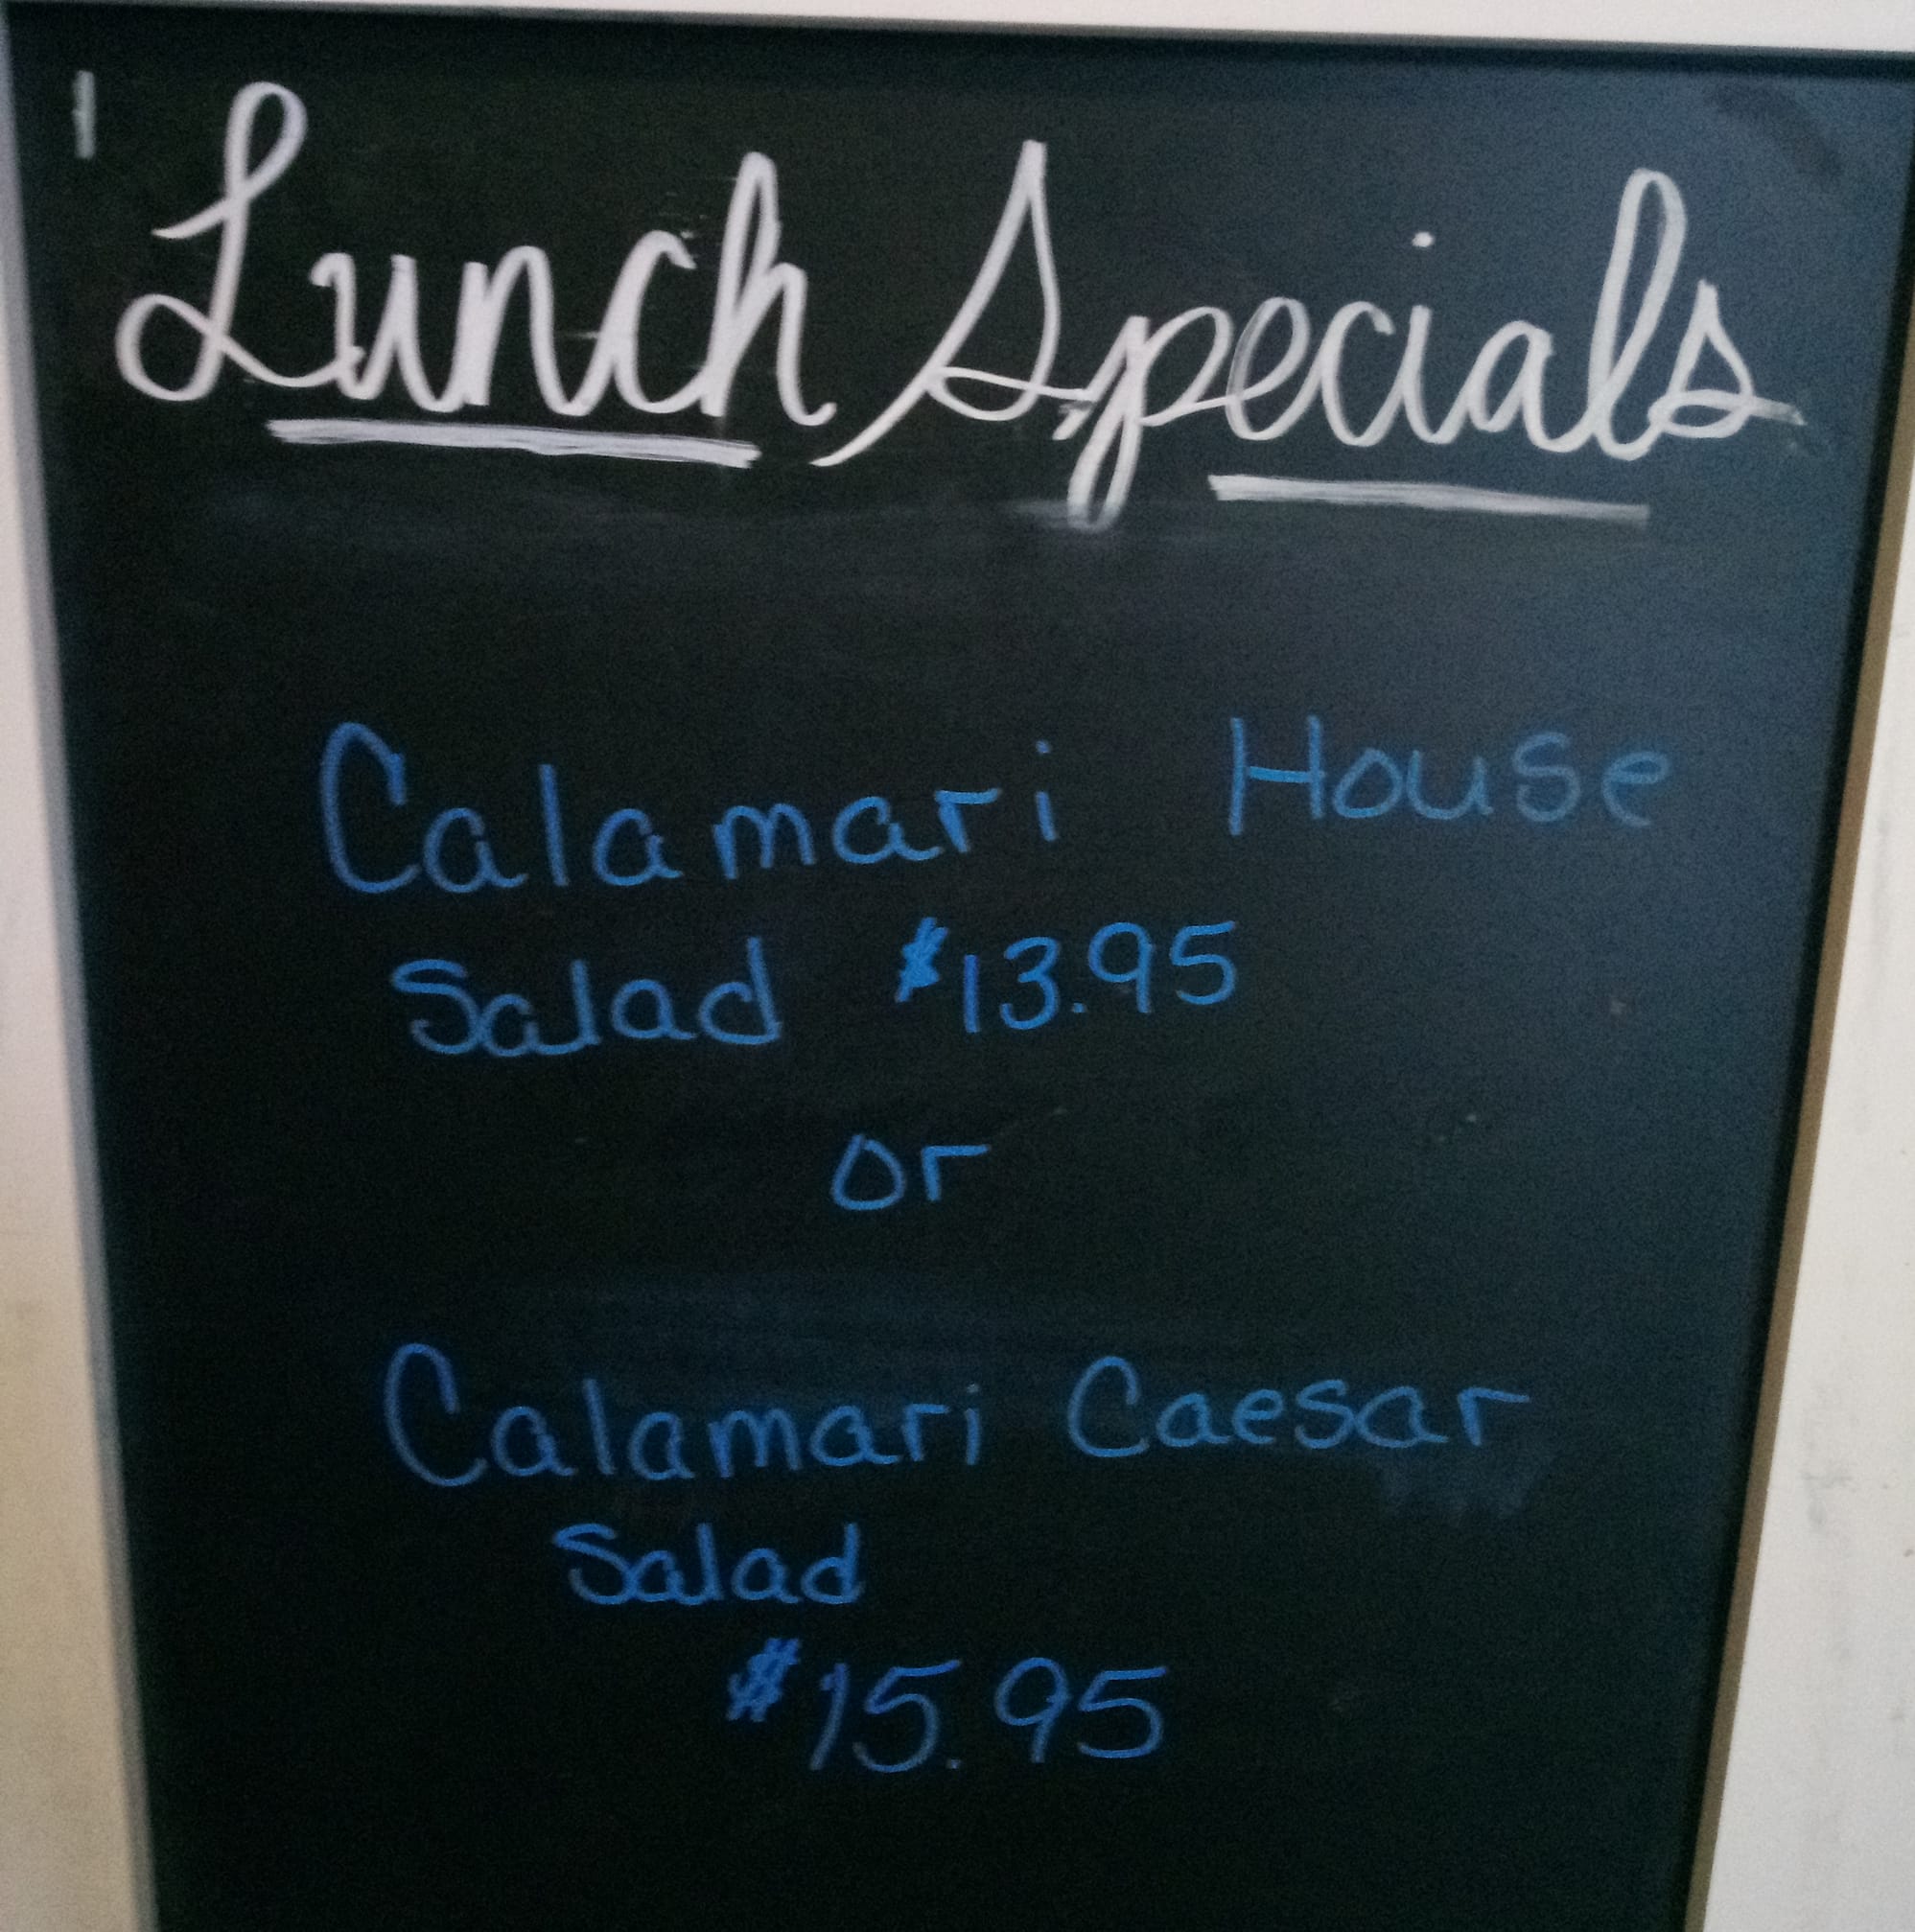 Lunch Specials
Calamari House
Salad $13.95
or
Calamari Caesar
Salad
$15.95